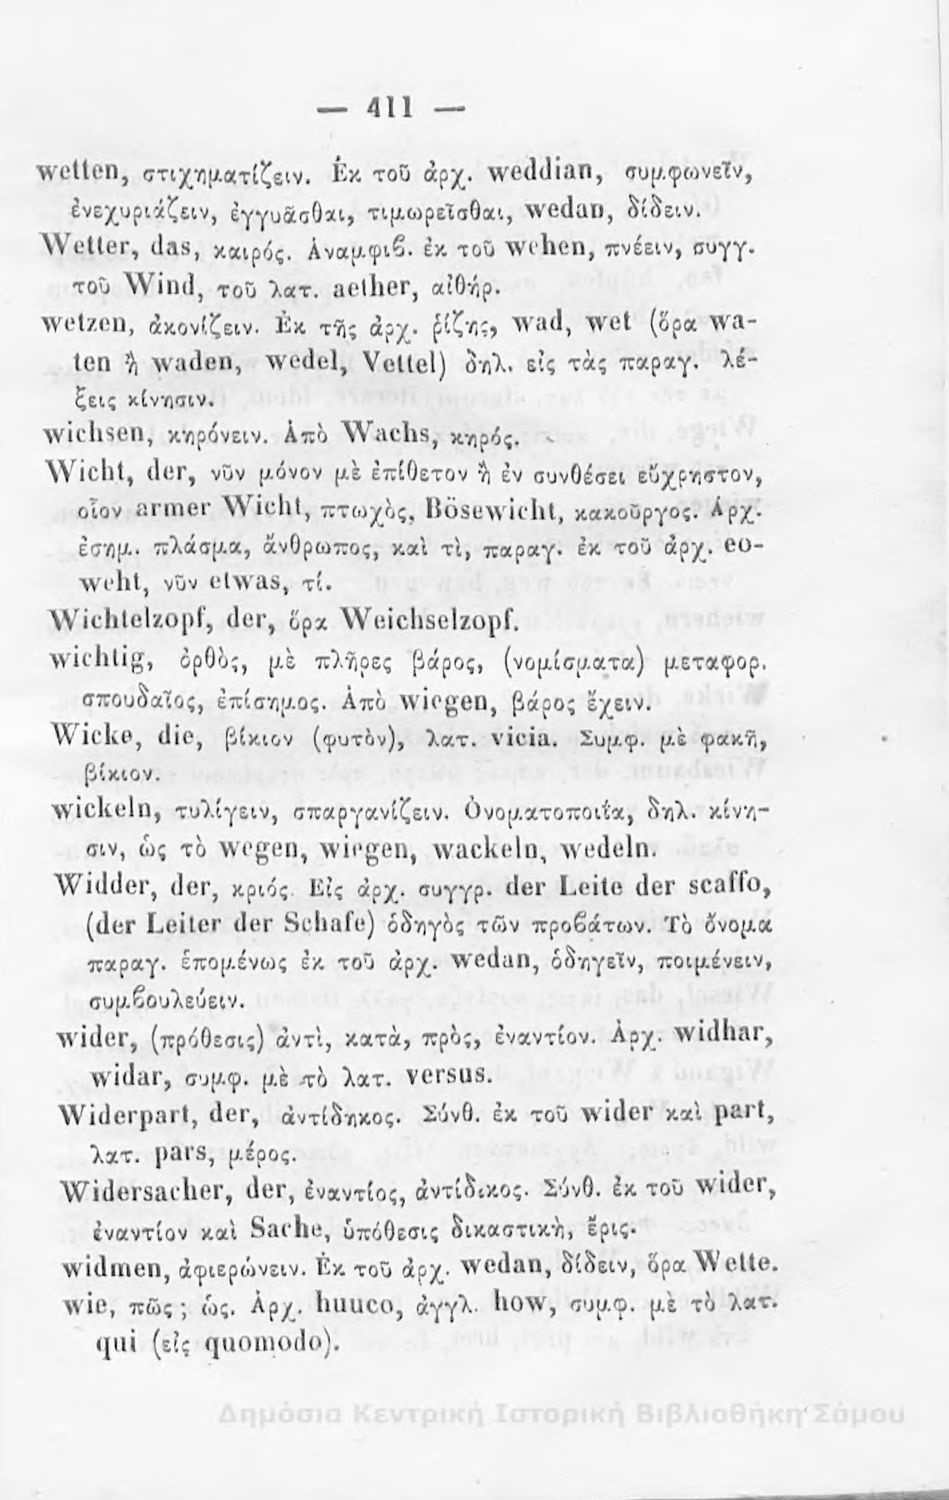 — 411 —
wetten, στιχηματίζειν. Ἐκ τοῦ ἀρχ. weddian, συμφωνεῖν,
ἐνεχυριάζειν, ἐγγυᾶσθαι, τιμωρεῖσθαι, wedan, δίδειν.
Wetter, das, καιρός. Ἀναμφιβ. ἐκ τοῦ wehen, πνέειν, συγγ.
τοῦ Wind, τοῦ λατ. aether, αἰθήρ.
wetzen, ἀκονίζειν. Ἐκ τῆς ἀρχ. ῥίζης, wad, wet (ὅρα wa-
ten ἢ waden, wedel, Vettel) δηλ. εἰς τὰς παραγ. λέ-
ξεις κίνησιν.
wichsen, κηρόνειν. Ἀπὸ Wachs, κηρός.
Wicht, der, νῦν μόνον μὲ ἐπίθετον ἢ ἐν συνθέσει εὔχρηστον,
οἷον armer Wicht, πτωχὸς, Bösewicht, κακοῦργος. Ἀρχ.
ἐσημ. πλάσμα, ἄνθρωπος, καὶ τὶ, παραγ. ἐκ τοῦ ἀρχ. eo-
weht, νῦν etwas, τί.
Wichtelzopf, der, ὅρα Weichselzopf.
wichtig, ὀρθὸς, μὲ πλῆρες βάρος, (νομίσματα) μεταφορ.
σπουδαῖος, ἐπίσημος. Ἀπὸ wiegen, βάρος ἔχειν.
Wicke, die, βίκιον (φυτὸν), λατ. vicia. Συμφ. μὲ φακῆ,
βίκιον.
wickeln, τυλίγειν, σπαργανίζειν. Ὀνοματοποιΐα, δηλ. κίνη-
σιν, ὡς τὸ wegen, wiegen, wackeln, wedeln.
Widder, der, κριός. Εἰς ἀρχ. συγγρ. der Leite der scaffo,
(der Leiter der Schafe) ὁδηγὸς τῶν προβάτων. Τὸ ὄνομα
παραγ. ἑπομένως ἐκ τοῦ ἀρχ. wedan, ὁδηγεῖν, ποιμένειν,
συμβουλεύειν.
wider, (πρόθεσις) ἀντὶ, κατὰ, πρὸς, ἐναντίον. Ἀρχ. widhar,
widar, συμφ. μὲ τὸ λατ. versus.
Widerpart, der, ἀντίδηκος. Σύνθ. ἐκ τοῦ wider καὶ part,
λατ. pars, μέρος.
Widersacher, der, ἐναντίος, ἀντίδικος. Σύνθ. ἐκ τοῦ wider,
ἐναντίον καὶ Sache, ὑπόθεσις δικαστικὴ, ἔρις.
widmen, ἀφιερώνειν. Ἐκ τοῦ ἀρχ. wedan, δίδειν, ὅρα Wette.
wie, πῶς; ὡς. Ἀρχ. huuco, ἀγγλ. how, συμφ. μὲ τὸ λατ.
qui (εἰς quomodo).
Δημόσια Κεντρική Ιστορική Βιβλιοθήκη Σάμου